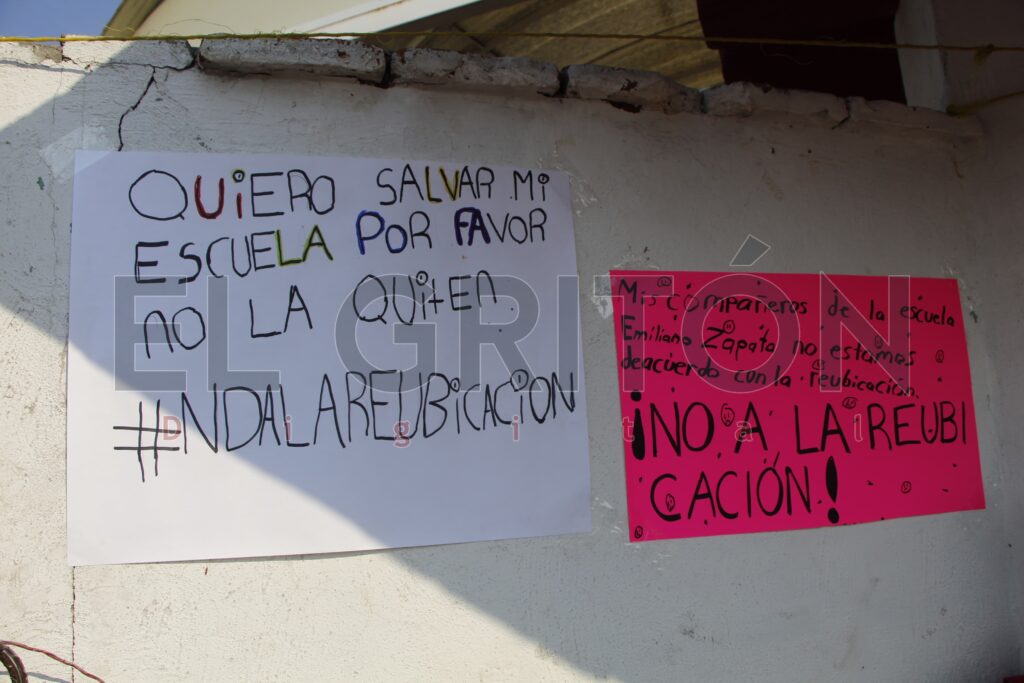 QUiERO SALVAR Mi
ESCUELA POR FAVOR
NO LA QUiTEN
#NOALAREUBiCACiON
Mis compañeros de la escuela
Emiliano Zapata no estamos
deacuerdo con la reubicación.
¡NO A LA REUBI
CACIÓN!
EL GRITÓN
Digital